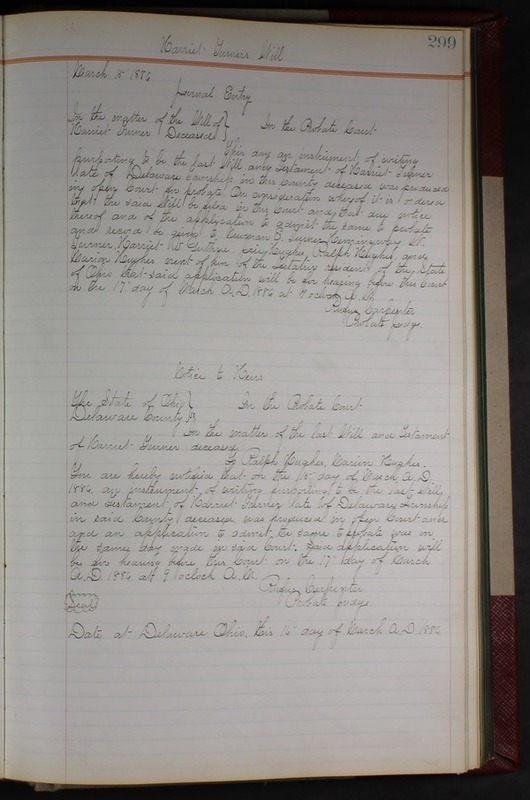 Harriet Turner's Will
299
March 15" 1886
Journal Entry
In the matter of the Will of }
Harriet Turner Deceased } In the Probate Court
This day an instrument of writing
purporting to be the last Will and Testament of Harriet Turner
late of Delaware Township in this County deceased was produced
in open Court for probate. On consideration whereof it is ordered
that the said Will be filed in this Court and that due notice
thereof and of the application to admit the same to probate
and record be given to Newman
Turner, Harriet W. Guthrie, Hughes, Ralph Hughes, and
Marion Hughes next of kin of the Testatrix resident of the State
of Ohio that said application will be for hearing before this Court
on the 17" day of March A.D. 1886 at 9 oclock A.M.
Rufus Carpenter
Probate Judge.
Notice to Heirs
The State of Ohio }
Delaware County } In the Probate Court
In the matter of the last Will and Testament
of Harriet Turner deceased
To Ralph Hughes, Marion Hughes.
You are hereby notified that on the 15" day of March A.D.
1886 an instrument of writing purporting to be the last Will
and Testament of Harriet Turner late of Delaware Township
in said County deceased, was produced in open Court and
and an application to admit the same to probate was on
the same day made in said Court. Said application will
be for hearing before this Court on the 17" day of March
A.D. 1886 at 9 oclock A.M.
Rufus Carpenter
Seal Probate Judge.
Date at Delaware Ohio, this 15" day of March A.D. 1886